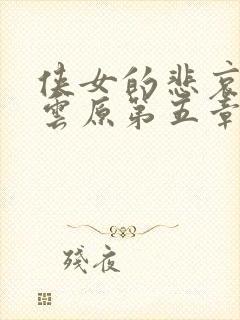 侠女的悲哀
雲原第五章
殘夜